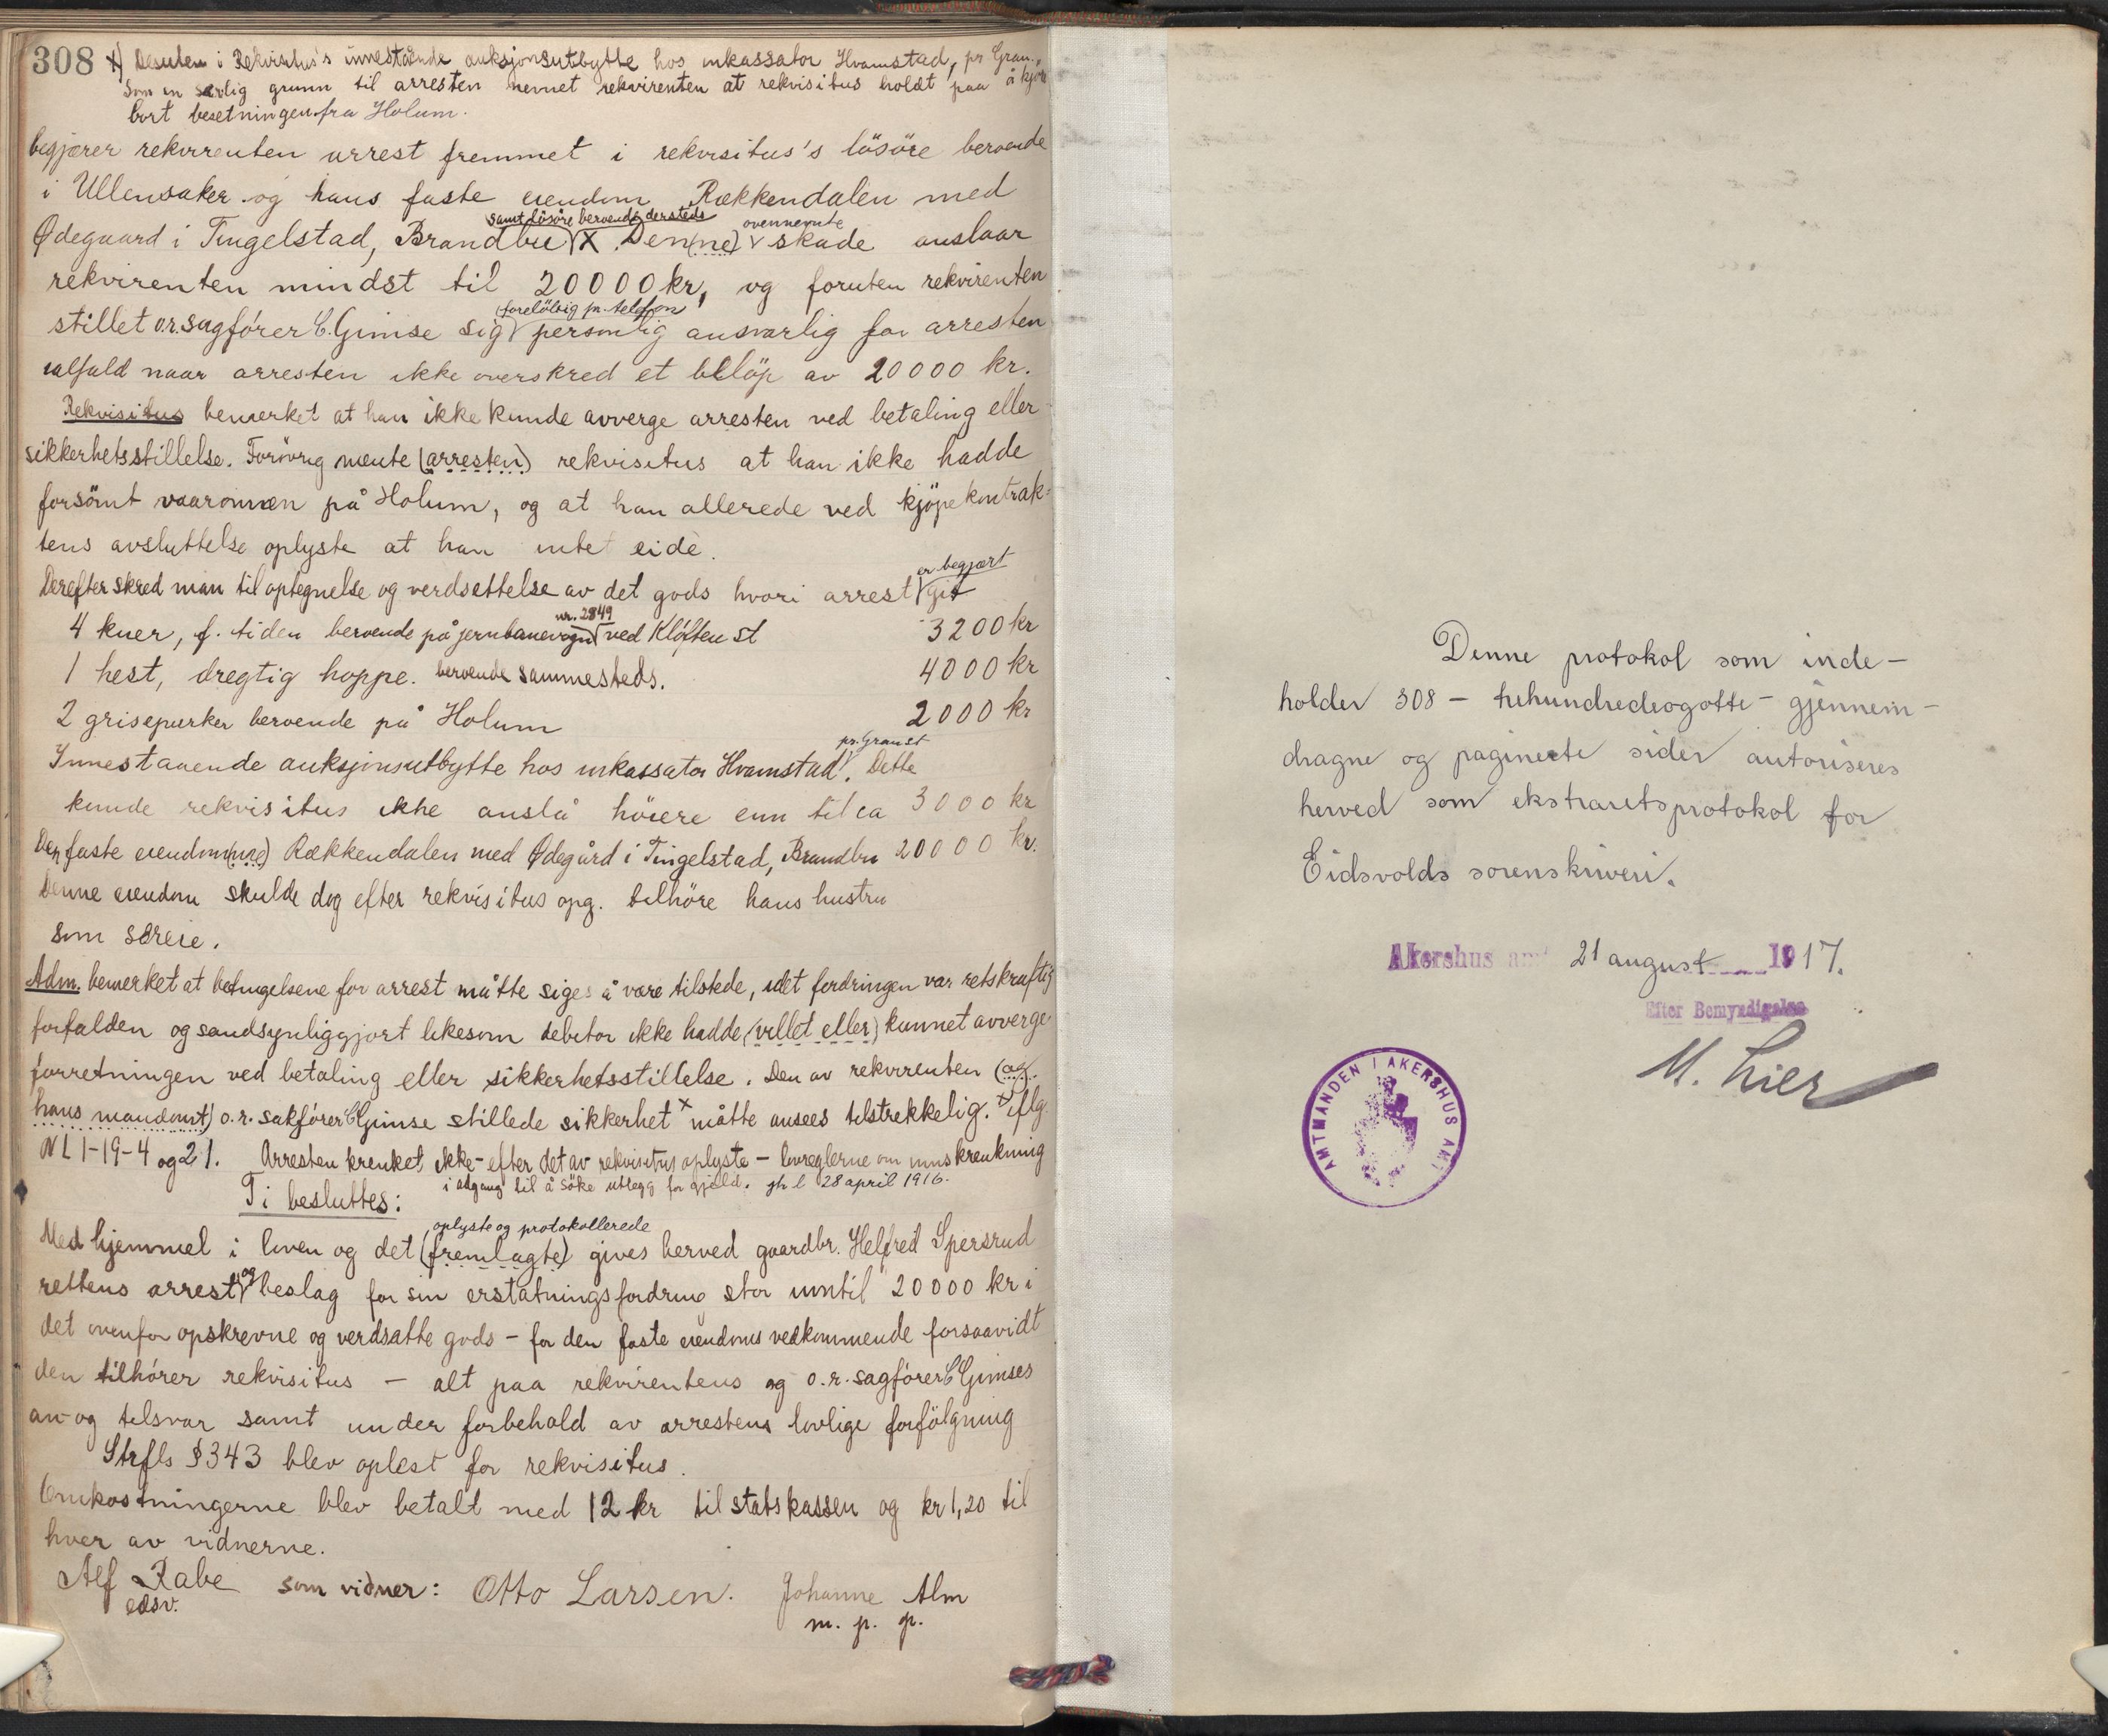 308 x) Desuten i Rekvisitus's innestående auksjonsutbytte hos inkassator Hvamstad, pr Gran.,
Som en særlig grunn til arresten nevnet rekvirenten at rekvisitus holdt paa å kjøre
bort besetningen fra Holum.
begjærer rekvirenten arrest fremmet i rekvisitus's løsöre beroende
i Ullensaker og hans faste eiendom Rækkendalen med
samt løsöre beroende dersteds
ovennevnte
Ødegaard i Tingelstad, Brandbu X. Den(ne) skade anslaar
rekvirenten mindst til 20000 kr, og foruten rekvirenten
foreløbig pr. telefon
stillet o.r.sagfører C. Gimse sig personlig ansvarlig for arresten
ialfald naar arresten ikke overskred et beløp av 20000 kr.
Rekvisitus bemerket at han ikke kunde avverge arresten ved betaling eller
sikkerhetsstillelse. Forövrig mente (arresten) rekvisitus at han ikke hadde
forsömt vaaronnen på Holum, og at han allerede ved kjöpekontrak-
tens avsluttelse oplyste at han intet eide.
er begjært
Derefter skred man til optegnelse og verdsettelse av det gods hvori arrest git
nr. 2849
4 kuer, f. tiden beroende på jernbanevogn ved Kløften st 3200 kr
1 hest, dregtig hoppe. beroende sammesteds. 4000 kr
2 grisepurker beroende på Holum 2000 kr
pr. Gran st
Innestaaende auksjonsutbytte hos inkassator Hvamstad. Dette
kunde rekvisitus ikke anslå höiere enn til ca 3000 kr
Den faste eiendom(me) Rækkendalen med Ødegård i Tingelstad, Brandbu 20000 kr.
Denne eiendom skulde dog efter rekvisitus opg. tilhöre hans hustru
som særeie.
Adm. bemerket at betingelsene for arrest måtte siges å være tilstede, idet fordringen var retskraftig
forfalden og sandsynliggjort likesom debitor ikke hadde (villet eller) kunnet avverge
forretningen ved betaling eller sikkerhetsstillelse. Den av rekvirenten (og
hans mandant) o.r. sakfører C Gimse stillede sikkerhet x måtte ansees tilstrekkelig. x) iflg.
NL 1-19-4 og 21. Arresten krenket ikke - efter det av rekvisitus oplyste - lovreglerne om innskrenkning
i adgang til å söke utlegg for gjæld. jfr l 28 april 1916.
Ti besluttes:
oplyste og protokollerede
Med hjemmel i loven og det (fremlagte) gives herved gaardbr. Helfred Spersrud
og
rettens arrest beslag for sin erstatningsfordring stor inntil 20000 kr i
det ovenfor opskrevne og verdsatte gods - for den faste eiendoms vedkommende forsaavidt
den tilhører rekvisitus - alt paa rekvirentens og o.r. sagfører C Gimses
an- og tilsvar samt under forbehold av arrestens lovlige forfölgning
Strfls § 343 blev oplest for rekvisitus.
Omkostningerne blev betalt med 12 kr til statskassen og kr 1,20 til
hver av vidnerne.
Alf Rabe som vidner: Otto Larsen. Johanne Alm
edsv. m. p. p.
Denne protokol som inde-
holder 308 - trehundredeogotte - gjennem-
dragne og paginerte sider autoriseres
herved som ekstraretsprotokol for
Eidsvolds sorenskriveri.
Akershus amt 21 august 1917.
Efter Bemyndigelse
M. Lier
AMTMANDEN I AKERSHUS AMT